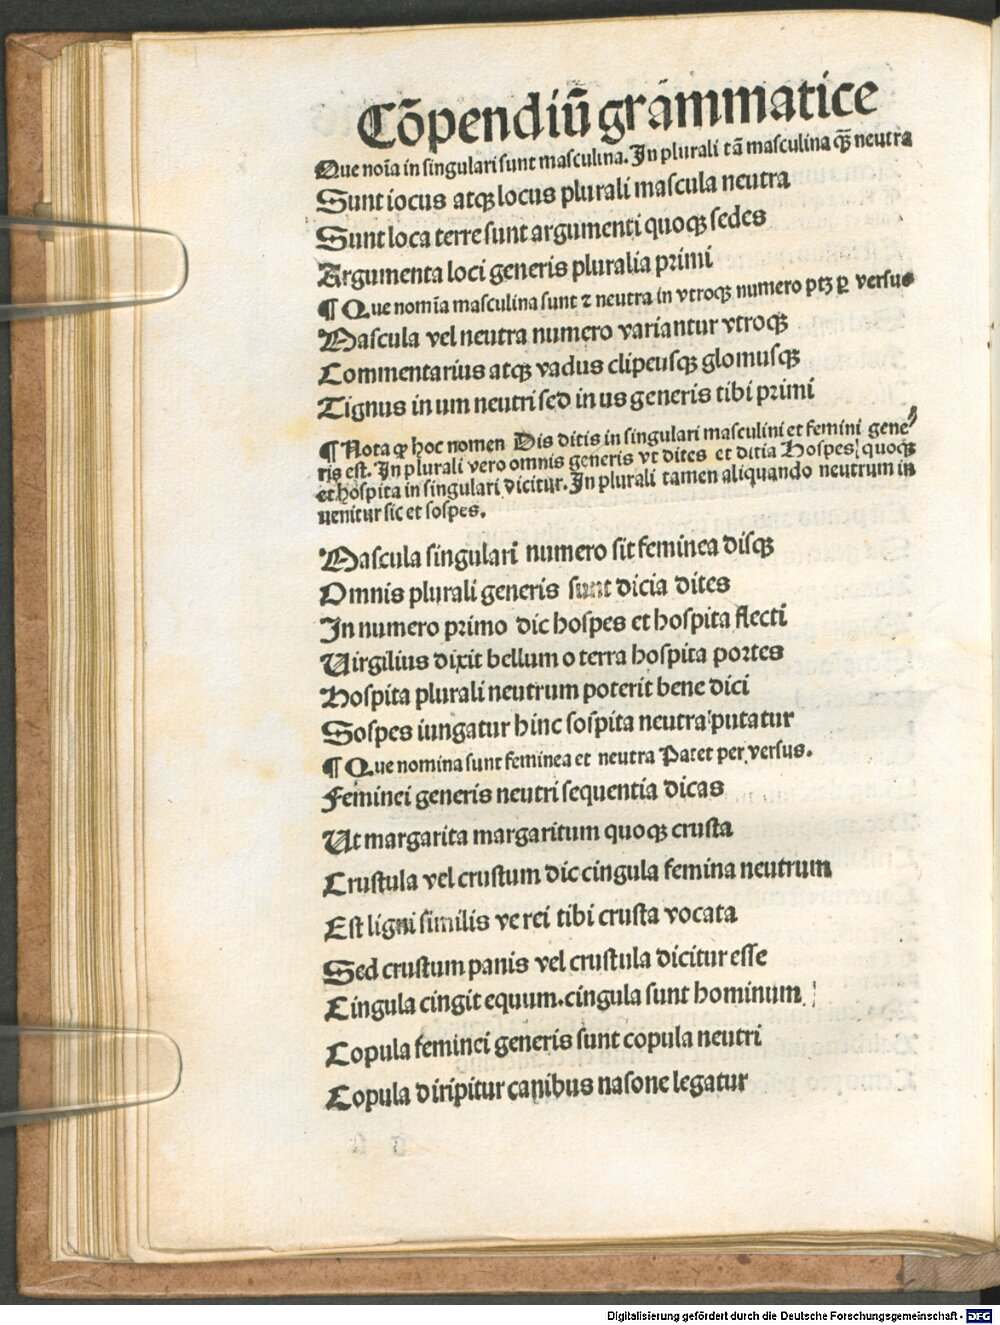 Cōpendiū grāmmatice
Que noīa in singulari sunt masculina. In plurali tā masculina qꝫ̄ neutra
Sunt iocus atqꝫ locus plurali mascula neutra
Sunt loca terre sunt argumenti quoqꝫ sedes
Argumenta loci generis pluralia primi
¶ Que nomīa masculina sunt ⁊ neutra in vtroqꝫ numero ptꝫ ꝑ versus
Mascula vel neutra numero variantur vtroqꝫ
Commentarius atqꝫ vadus clipeusqꝫ glomusqꝫ
Tignus in um neutri sed in us generis tibi primi
¶ Nota ꝙ hoc nomen Dis ditis in singulari masculini et femini gene⸗
ris est. In plurali vero omnis generis vt dites et ditia Hospes quoqꝫ
et hospita in singulari dicitur. In plurali tamen aliquando neutrum in
uenitur sic et sospes.
Mascula singulari numero sit feminea disqꝫ
Omnis plurali generis sunt dicia dites
In numero primo dic hospes et hospita flecti
Uirgilius dixit bellum o terra hospita portes
Hospita plurali neutrum poterit bene dici
Sospes iungatur hinc sospita neutra putatur
¶ Que nomina sunt feminea et neutra Patet per versus.
Feminei generis neutri sequentia dicas
Ut margarita margaritum quoqꝫ crusta
Crustula vel crustum dic cingula femina neutrum
Est ligni similis ve rei tibi crusta vocata
Sed crustum panis vel crustula dicitur esse
Cingula cingit equum. cingula sunt hominum
Copula feminei generis sunt copula neutri
Copula diripitur canibus nasone legatur
Digitalisierung gefördert durch die Deutsche Forschungsgemeinschaft - DFG